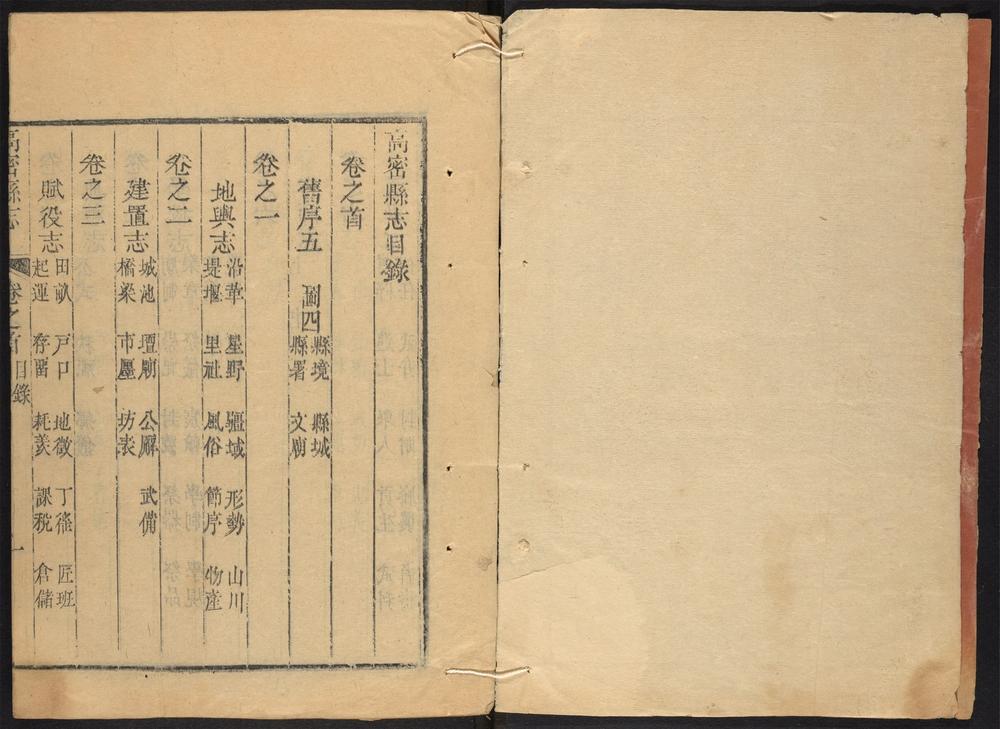 高密縣志目錄
卷之首
舊序五 圖四 縣境 縣城 縣署 文廟
卷之一
地輿志 沿革 星野 疆域 形勢 山川 堤堰 里社 風俗 節序 物產
卷之二
建置志 城池 壇廟 公廨 武備 橋梁 市廛 坊表
卷之三
賦役志 田畝 戶口 地徵 丁徭 匠班 起運 存留 耗羨 課稅 倉儲
高密縣志 卷之首 目錄 一